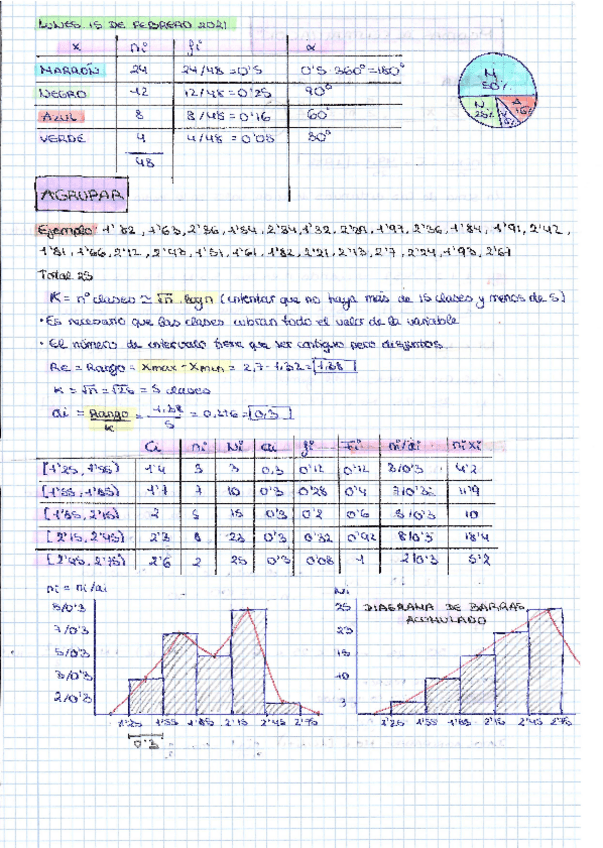 LUNES 15 DE FEBRERO 2021
x ni fi α
MARRÓN 24 24/48 = 0'5 0'5 · 360° = 180°
NEGRO 12 12/48 = 0'25 90°
AZUL 8 8/48 = 0'16 60°
VERDE 4 4/48 = 0'08 30°
48
M 50%
N 25%
A 16%
V
AGRUPAR
Ejemplo: 1'82, 1'63, 2'36, 1'84, 2'34, 1'32, 1'97, 2'36, 1'84, 1'91, 2'42,
1'81, 1'66, 2'12, 1'61, 1'82, 2'21, 2'7, 2'24, 1'93, 2'67
Total 25
K = nº clases ≃ √n (intentar que no haya más de 15 clases y menos de 5)
• Es necesario que las clases cubran todo el valor de la variable
• El número de intervalo tiene que ser contiguo pero disjuntos
Re = Rango = Xmax - Xmin = 2,7 - 1,32 = 1,38
K = √n = √25 = 5 clases
ai = Rango/K = 1,38/5 = 0,276 = 0,3
Ci ni Ni ai fi Fi ni/ai ni xi
[1'25, 1'55) 1'4 3 3 0,3 0'12 0'12 3/0'3 4'2
[1'55, 1'85) 1'7 7 10 0'3 0'28 0'4 11'9
[1'85, 2'15) 2 5 15 0'3 0'2 0'6 5/0'3 10
[2'15, 2'45) 2'3 8 23 0'3 0'32 0'92 8/0'3 18'4
[2'45, 2'75) 2'6 2 25 0'3 0'08 1 2/0'3 5'2
ni = ni/ai
8/0'3
7/0'3
5/0'3
3/0'3
2/0'3
1'25 1'55 1'85 2'15 2'45 2'75
0'3
Ni
DIAGRAMA DE BARRAS
ACUMULADO
25
23
15
10
3
1'25 1'55 1'85 2'15 2'45 2'75